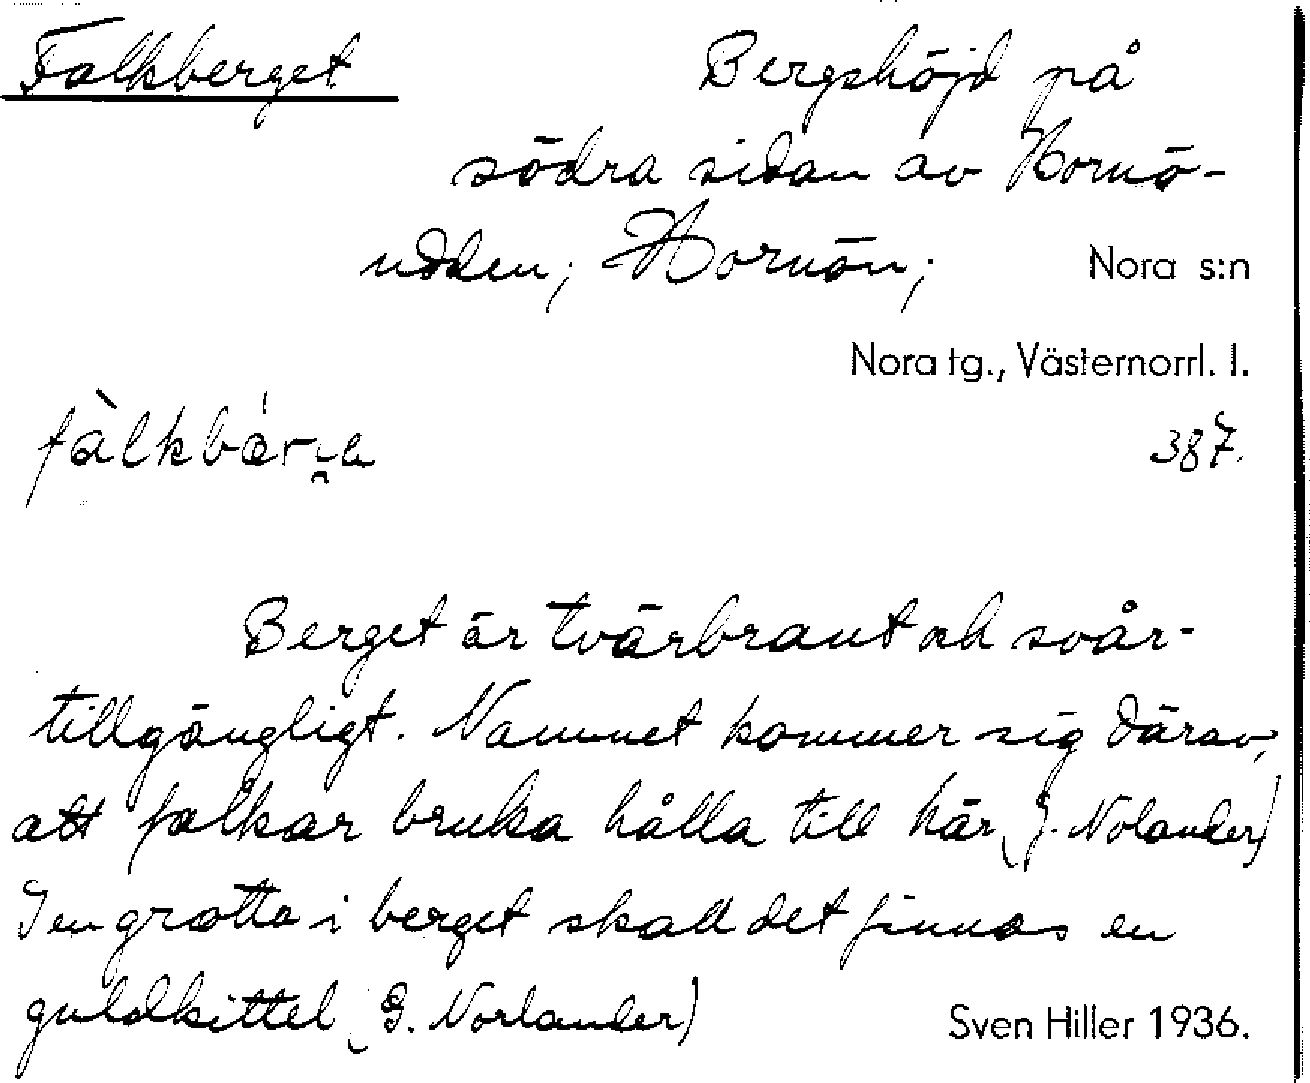 Falkberget Bergshöjd på
södra sidan av Hornö-
udden; Hornön; Nora s:n
Nora tg., Västernorrl. l.
387.
Berget är tvärbrant och svår-
tillgängligt. Namnet kommer sig därav,
att falkar bruka hålla till här (J. Nolander)
I en grotta i berget skall det finnas en
guldkittel (G. Norlander) Sven Hiller 1936.